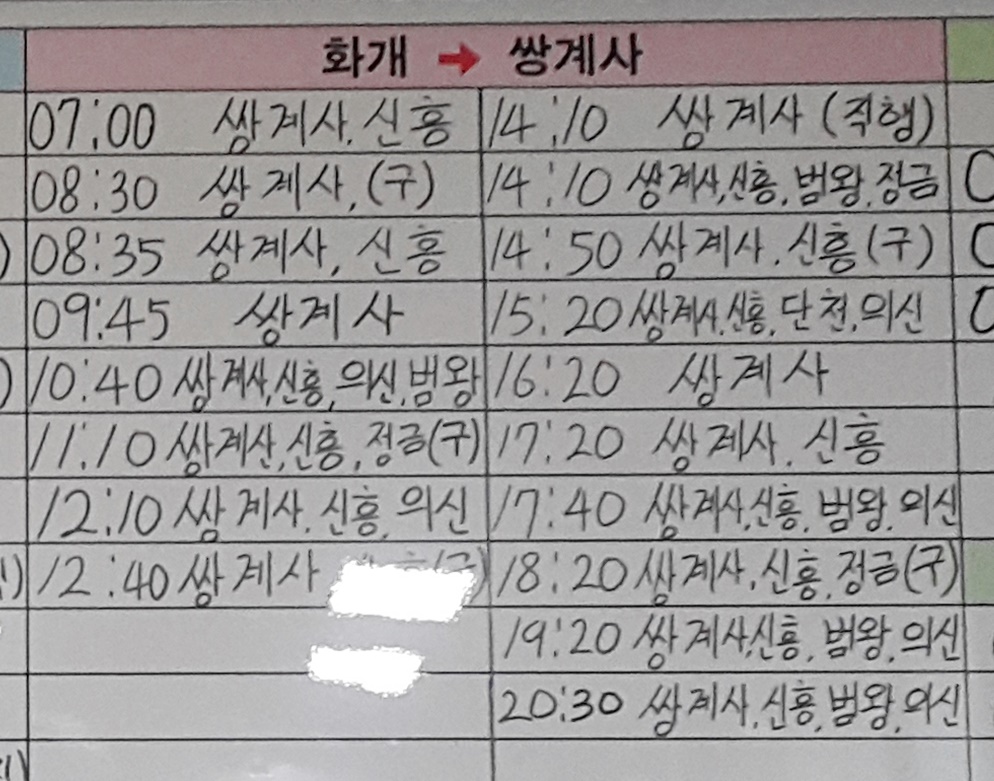 화개 → 쌍계사
07:00 쌍계사, 신흥
08:30 쌍계사, (구)
08:35 쌍계사, 신흥
09:45 쌍계사
10:40 쌍계사, 신흥, 의신, 범왕
11:10 쌍계사, 신흥, 정금(구)
12:10 쌍계사, 신흥, 의신
12:40 쌍계사 (구)
14:10 쌍계사 (직행)
14:10 쌍계사, 신흥, 범왕, 정금
14:50 쌍계사, 신흥 (구)
15:20 쌍계사, 신흥, 단천, 의신
16:20 쌍계사
17:20 쌍계사, 신흥
17:40 쌍계사, 신흥, 범왕, 의신
18:20 쌍계사, 신흥, 정금(구)
19:20 쌍계사, 신흥, 범왕, 의신
20:30 쌍계사, 신흥, 범왕, 의신